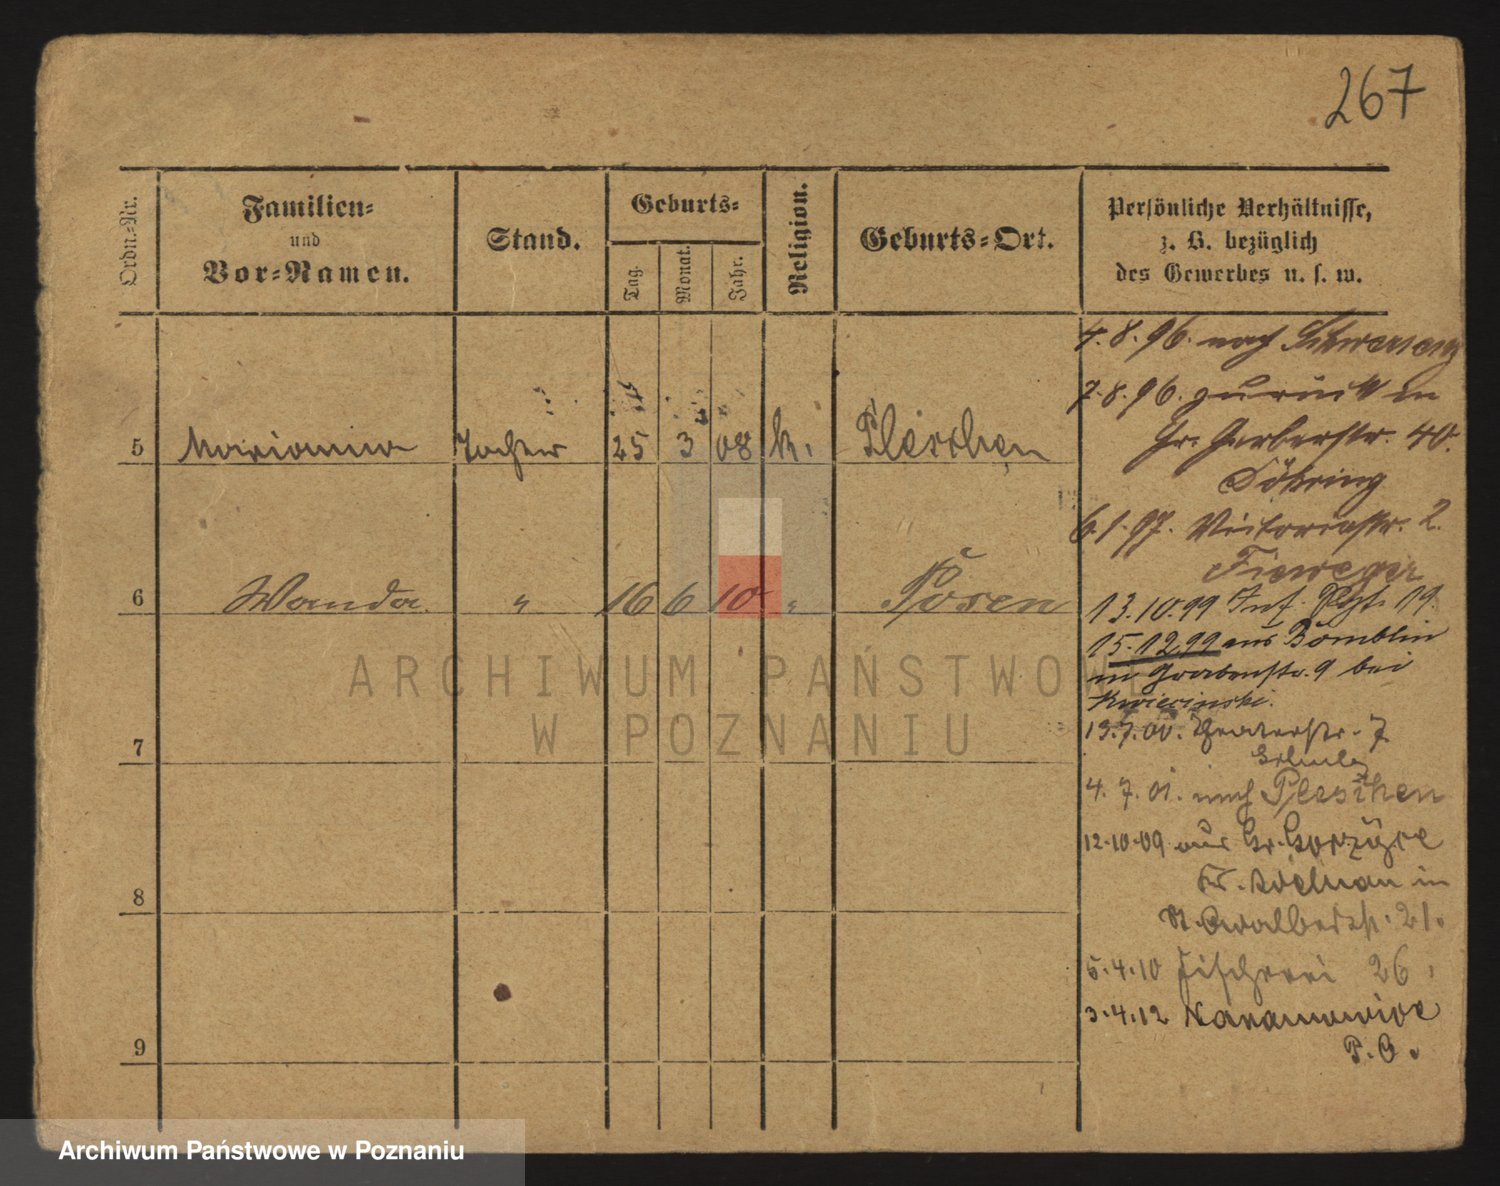 267
Ordn.-Nr.
Familien-
und
Vor-Namen.
Stand.
Geburts-
Tag.
Monat.
Jahr.
Religion.
Geburts-Ort.
Persönliche Verhältnisse,
z. B. bezüglich
des Gewerbes u. s. w.
4.8.96. nach Schwersenz
7.8.96. zurück in
Gr. Gerberstr. 40.
Döhring
5 Marianna Tochter 25 3 08 k. Pleschen
6.1.97. Victoriastr. 2.
Fieweger
6 Wanda " 16 6 10 " Posen
13.10.99 Inf. Rgt. 19.
15.12.99 aus Bomblin
in Grabenstr. 9 bei
Kwiecinski.
13.7.00. Theaterstr. 7
4.7.01. nach Pleschen
7
12.10.09 aus Gr. Gorzyce
Kr. Adelnau in
St. Adalbertstr. 21.
8
5.4.10 Fischerei 26.
3.4.12
P. O.
9
ARCHIWUM PAŃSTWOWE
W POZNANIU
Archiwum Państwowe w Poznaniu